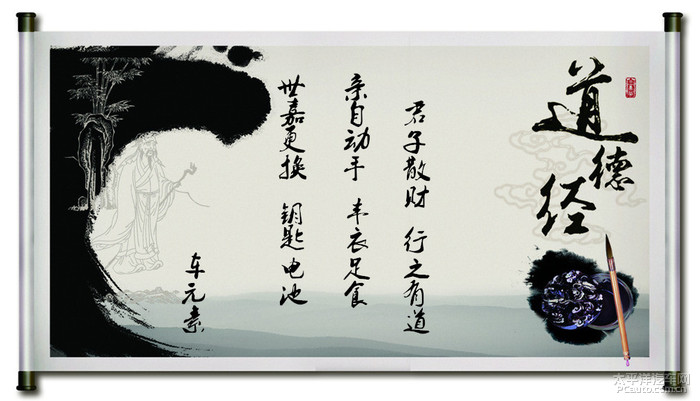 道德经
君子散财 行之有道
亲自动手 丰衣足食
世嘉更换 钥匙电池
车元素
太平洋汽车网
PCauto.com.cn